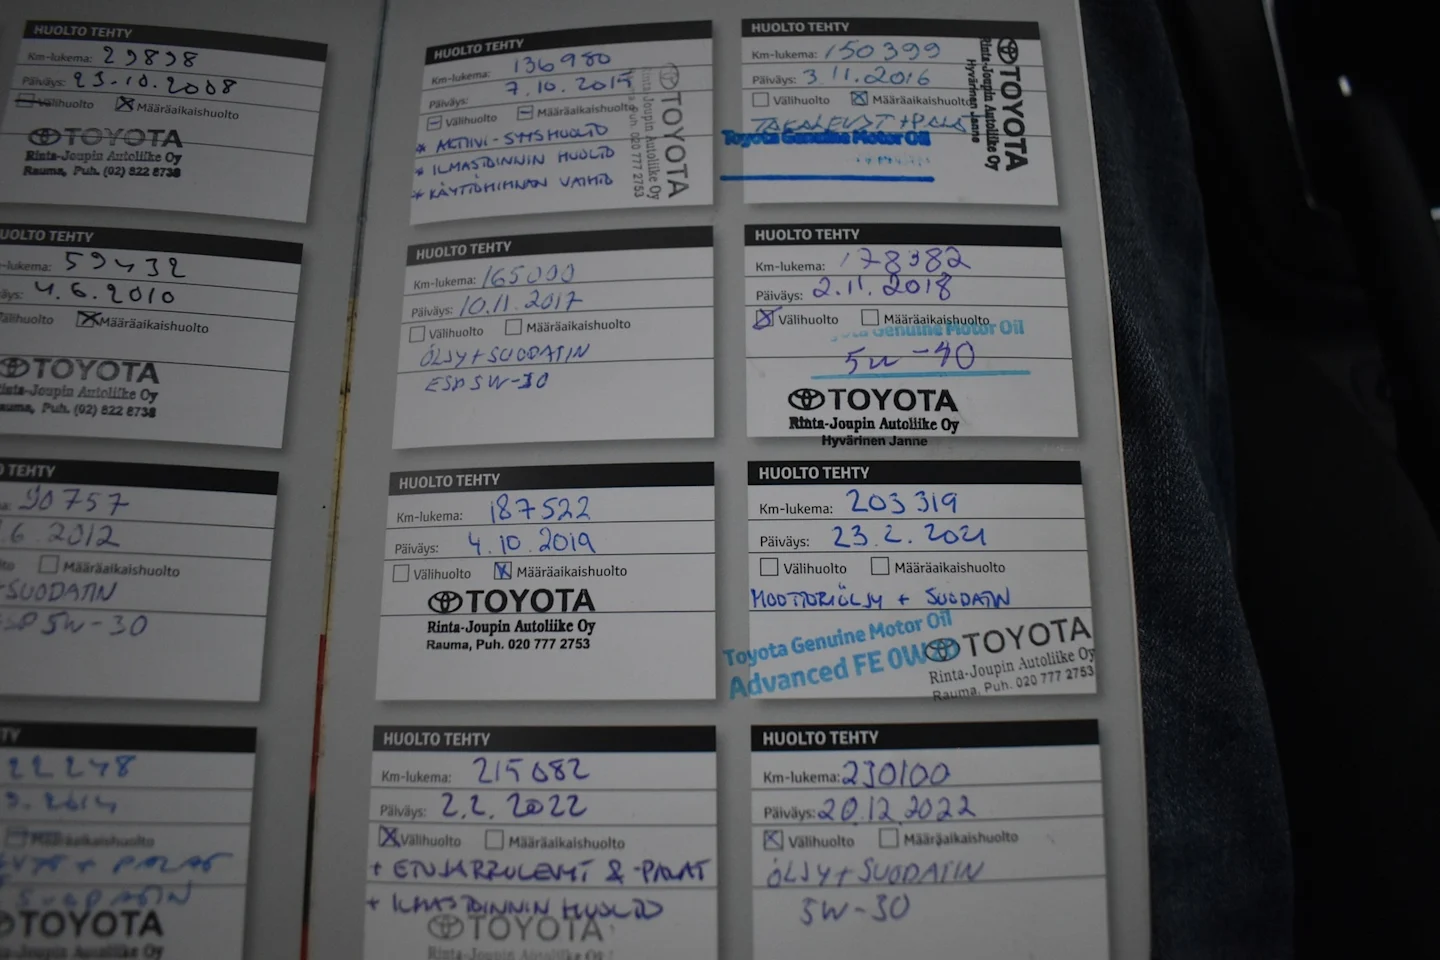 HUOLTO TEHTY
Km-lukema: 29838
Päiväys: 23.10.2008
Välihuolto Määräaikaishuolto
TOYOTA
Rinta-Joupin Autoliike Oy
Rauma, Puh. (02) 822 8738
UOLTO TEHTY
-lukema: 59432
äys: 4.6.2010
älihuolto Määräaikaishuolto
TOYOTA
inta-Joupin Autoliike Oy
auma, Puh. (02) 822 8738
O TEHTY
a: 90757
.6.2012
to Määräaikaishuolto
+SUODATIN
ESP 5W-30
TY
22248
Määräaikaishuolto
+ PALAT
SUODATIN
TOYOTA
HUOLTO TEHTY
Km-lukema: 136980
Päiväys: 7.10.2015
Välihuolto Määräaikaishuolto
* AKTIIVI-SYYSHUOLTO
* ILMASTOINNIN HUOLTO
* KÄYTTÖHIHNAN VAIHTO
TOYOTA
Rinta-Joupin Autoliike Oy
Puh. 020 777 2753
HUOLTO TEHTY
Km-lukema: 150399
Päiväys: 3.11.2016
Välihuolto Määräaikaishuolto
Toyota Genuine Motor Oil
TOYOTA
Rinta-Joupin Autoliike Oy
Hyvärinen Janne
HUOLTO TEHTY
Km-lukema: 165000
Päiväys: 10.11.2017
Välihuolto Määräaikaishuolto
ÖLJY+SUODATIN
ESP 5W-30
HUOLTO TEHTY
Km-lukema: 178382
Päiväys: 2.11.2018
Välihuolto Määräaikaishuolto
Genuine Motor Oil
TOYOTA
Rinta-Joupin Autoliike Oy
Hyvärinen Janne
HUOLTO TEHTY
Km-lukema: 187522
Päiväys: 4.10.2019
Välihuolto Määräaikaishuolto
TOYOTA
Rinta-Joupin Autoliike Oy
Rauma, Puh. 020 777 2753
HUOLTO TEHTY
Km-lukema: 203319
Päiväys: 23.2.2021
Välihuolto Määräaikaishuolto
MOOTTORIÖLJY + SUODATIN
Toyota Genuine Motor Oil
Advanced FE 0W
TOYOTA
Rinta-Joupin Autoliike Oy
Rauma, Puh. 020 777 2753
HUOLTO TEHTY
Km-lukema: 215082
Päiväys: 2.2.2022
Välihuolto Määräaikaishuolto
+ ETUJARRULEVYT & -PALAT
+ ILMASTOINNIN HUOLTO
TOYOTA
HUOLTO TEHTY
Km-lukema: 230100
Päiväys: 20.12.2022
Välihuolto Määräaikaishuolto
ÖLJY+SUODATIN
5W-30